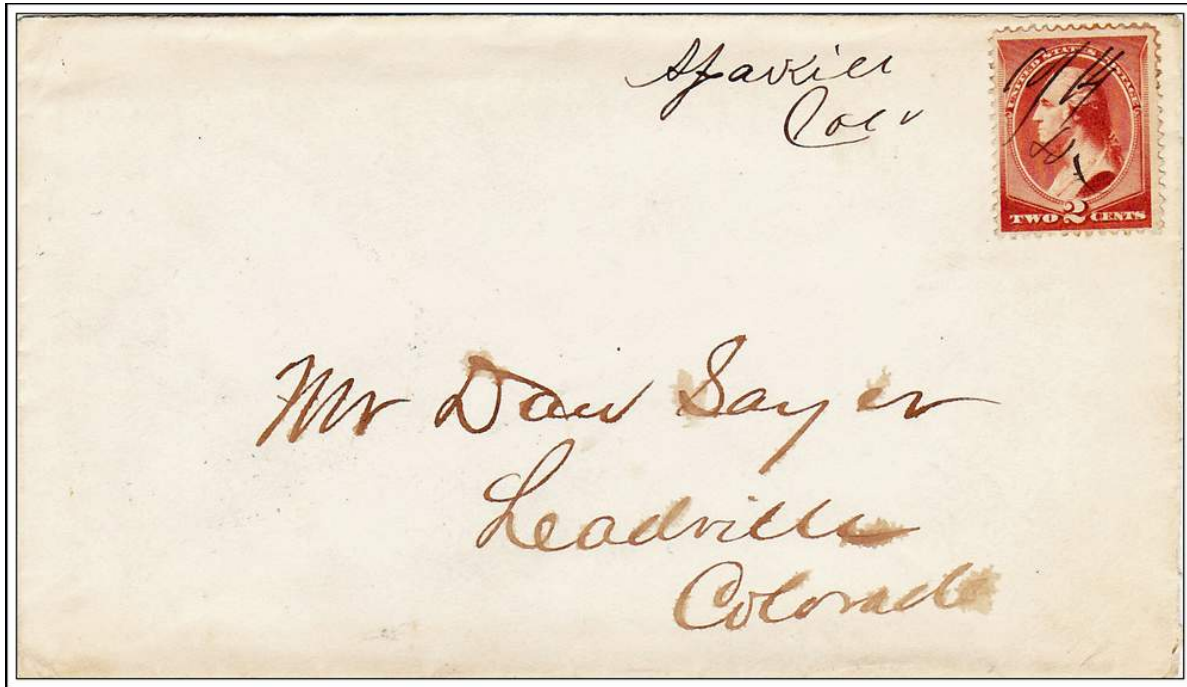 Colo
UNITED STATES POSTAGE
TWO 2 CENTS
Mr Dan Sayer
Leadville
Colorado